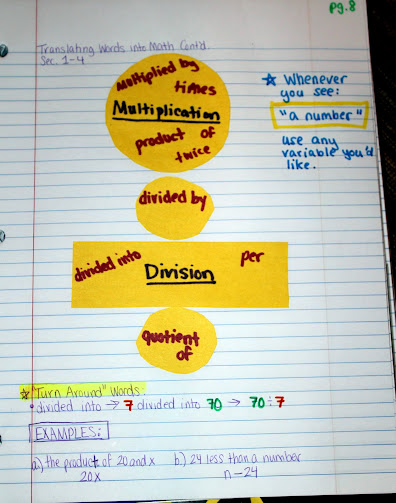 pg.8
Translating Words into Math Cont'd.
Sec. 1-4
Multiplied by
times
Multiplication
product of
twice
☆ Whenever
you see:
"a number"
use any
variable you'd
like.
divided by
divided into
Division
per
quotient
of
☆ "Turn Around" Words:
• divided into → 7 divided into 70 → 70÷7
EXAMPLES:
a.) the product of 20 and x b.) 24 less than a number
20x n-24